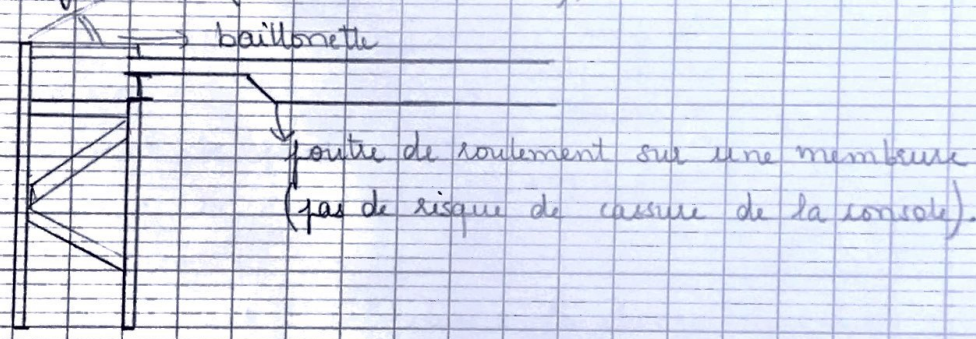 baillonette
poutre de roulement sur une membrure
(pas de risque de cassure de la console)